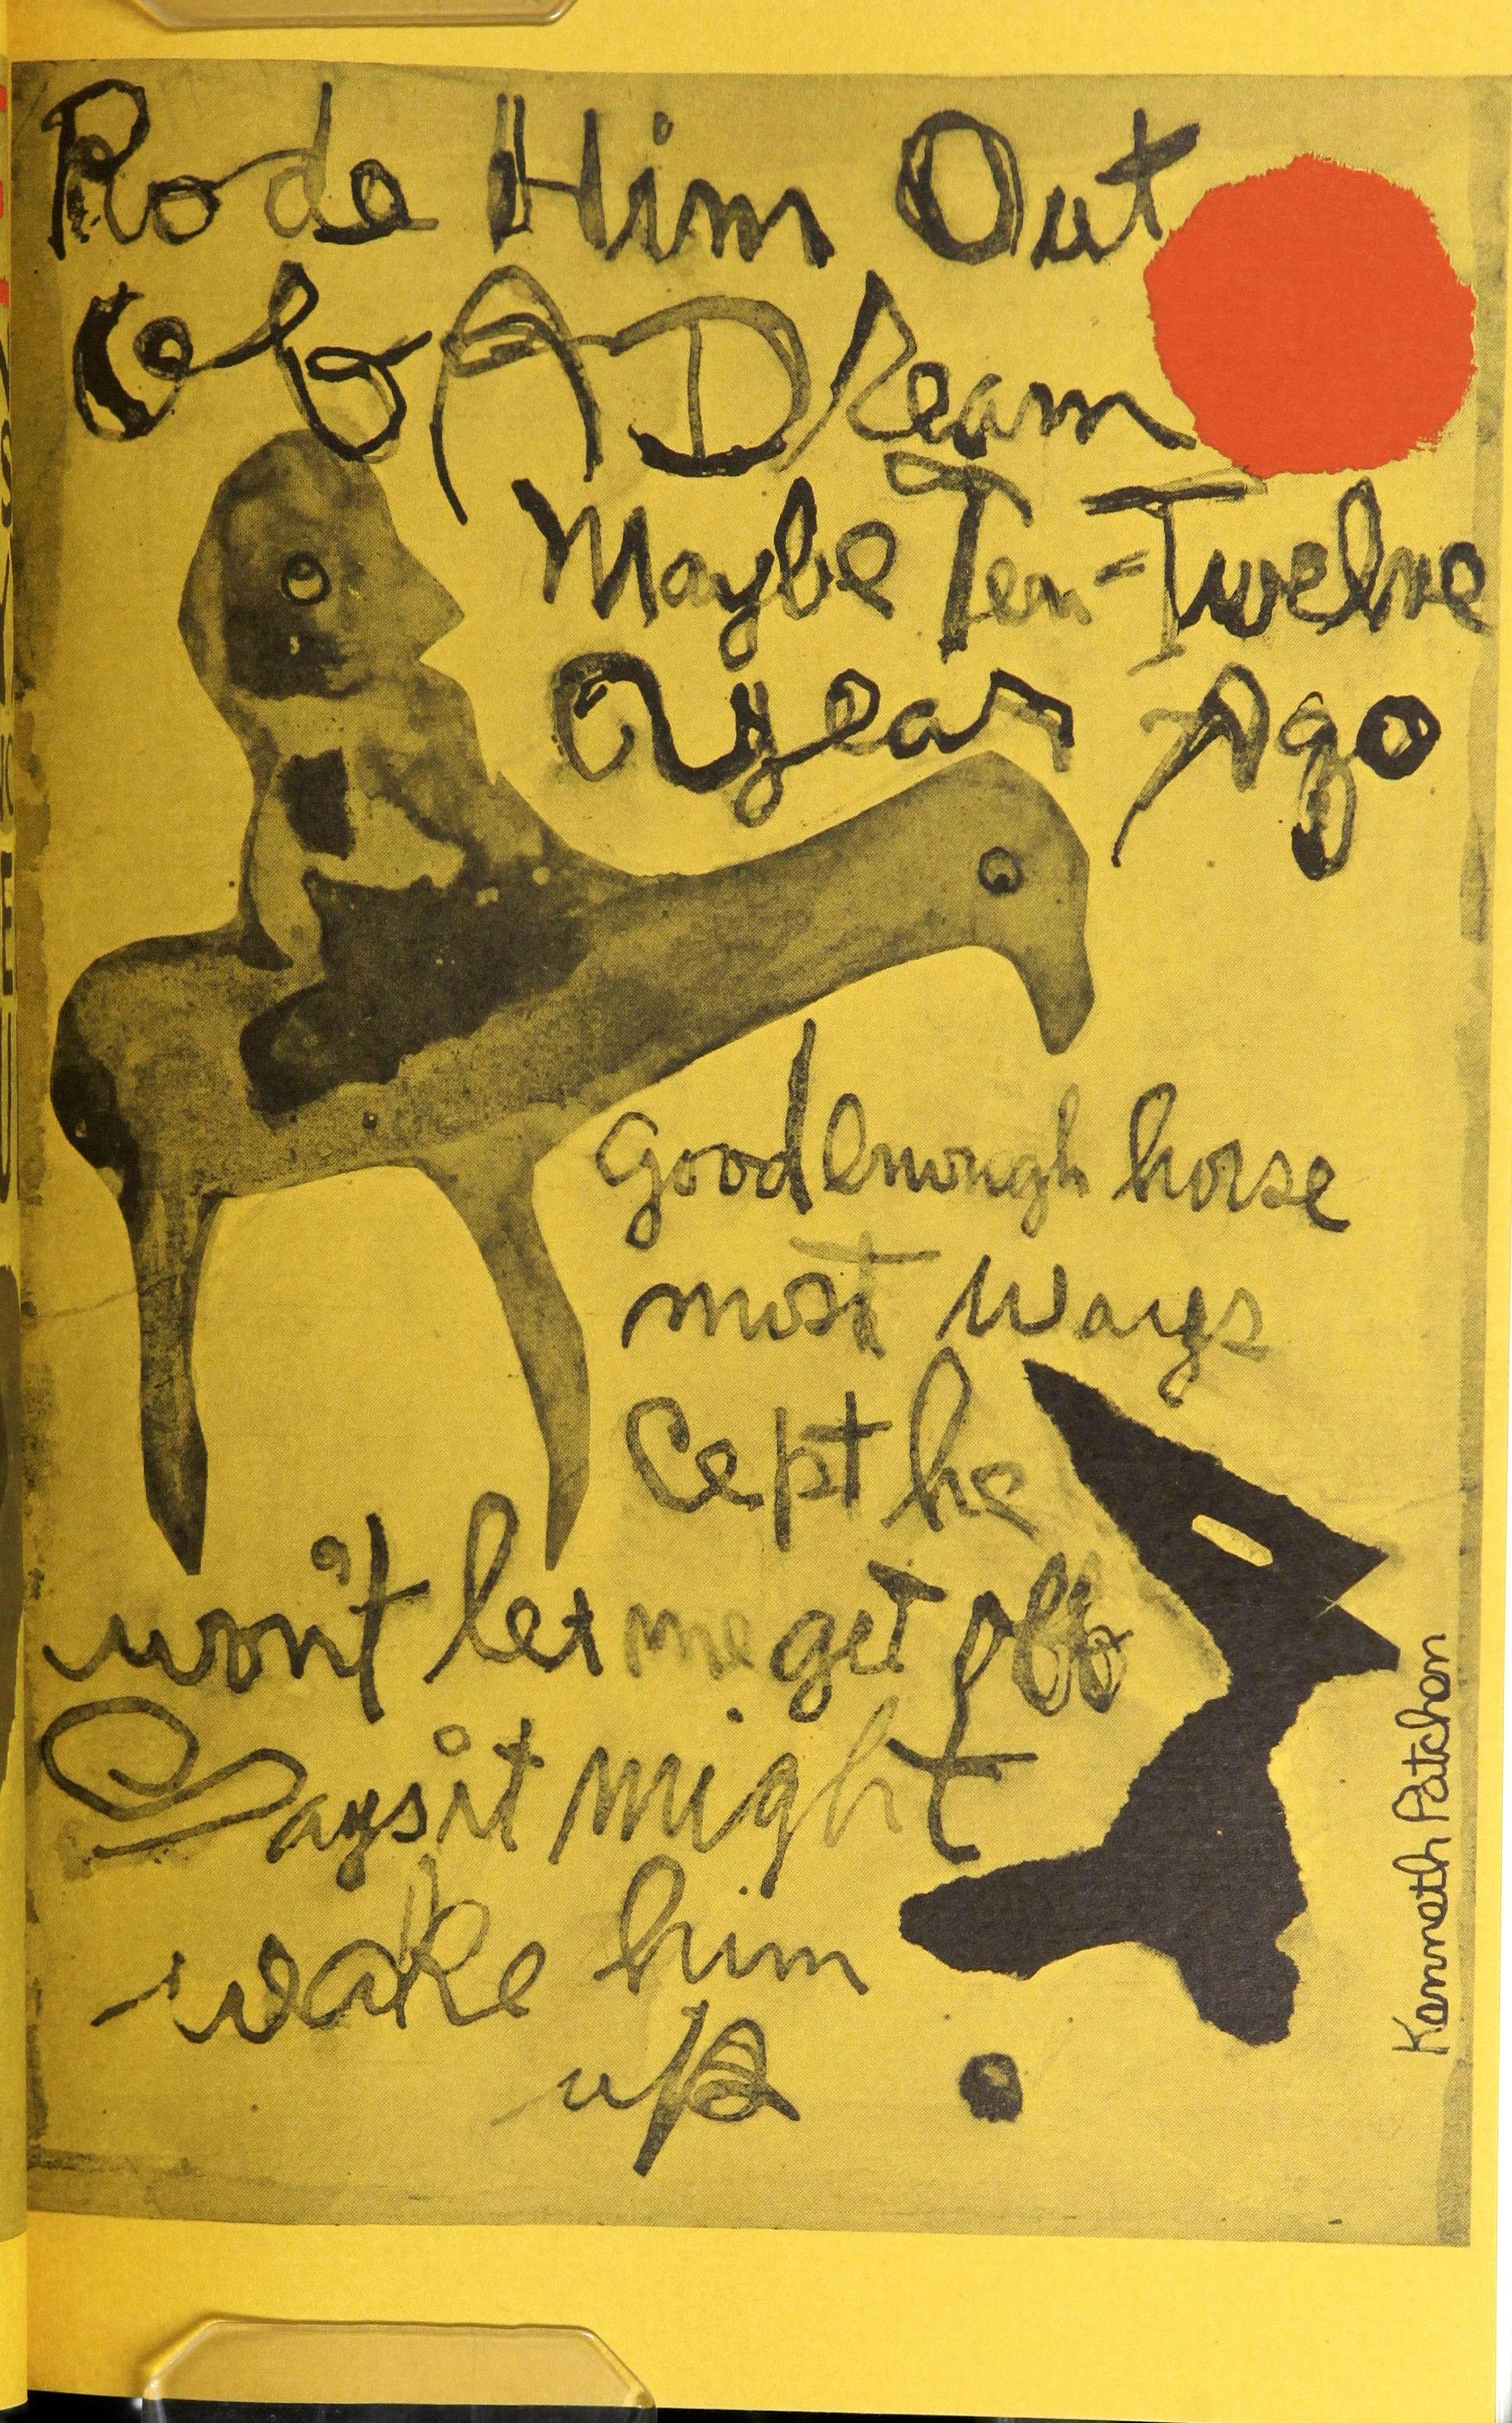 Rode Him Out
Of A Dream
Maybe Ten-Twelve
Year Ago
Good enough horse
most ways
Cept he
won't let me get off
Says it might
wake him
up
Kenneth Patchen